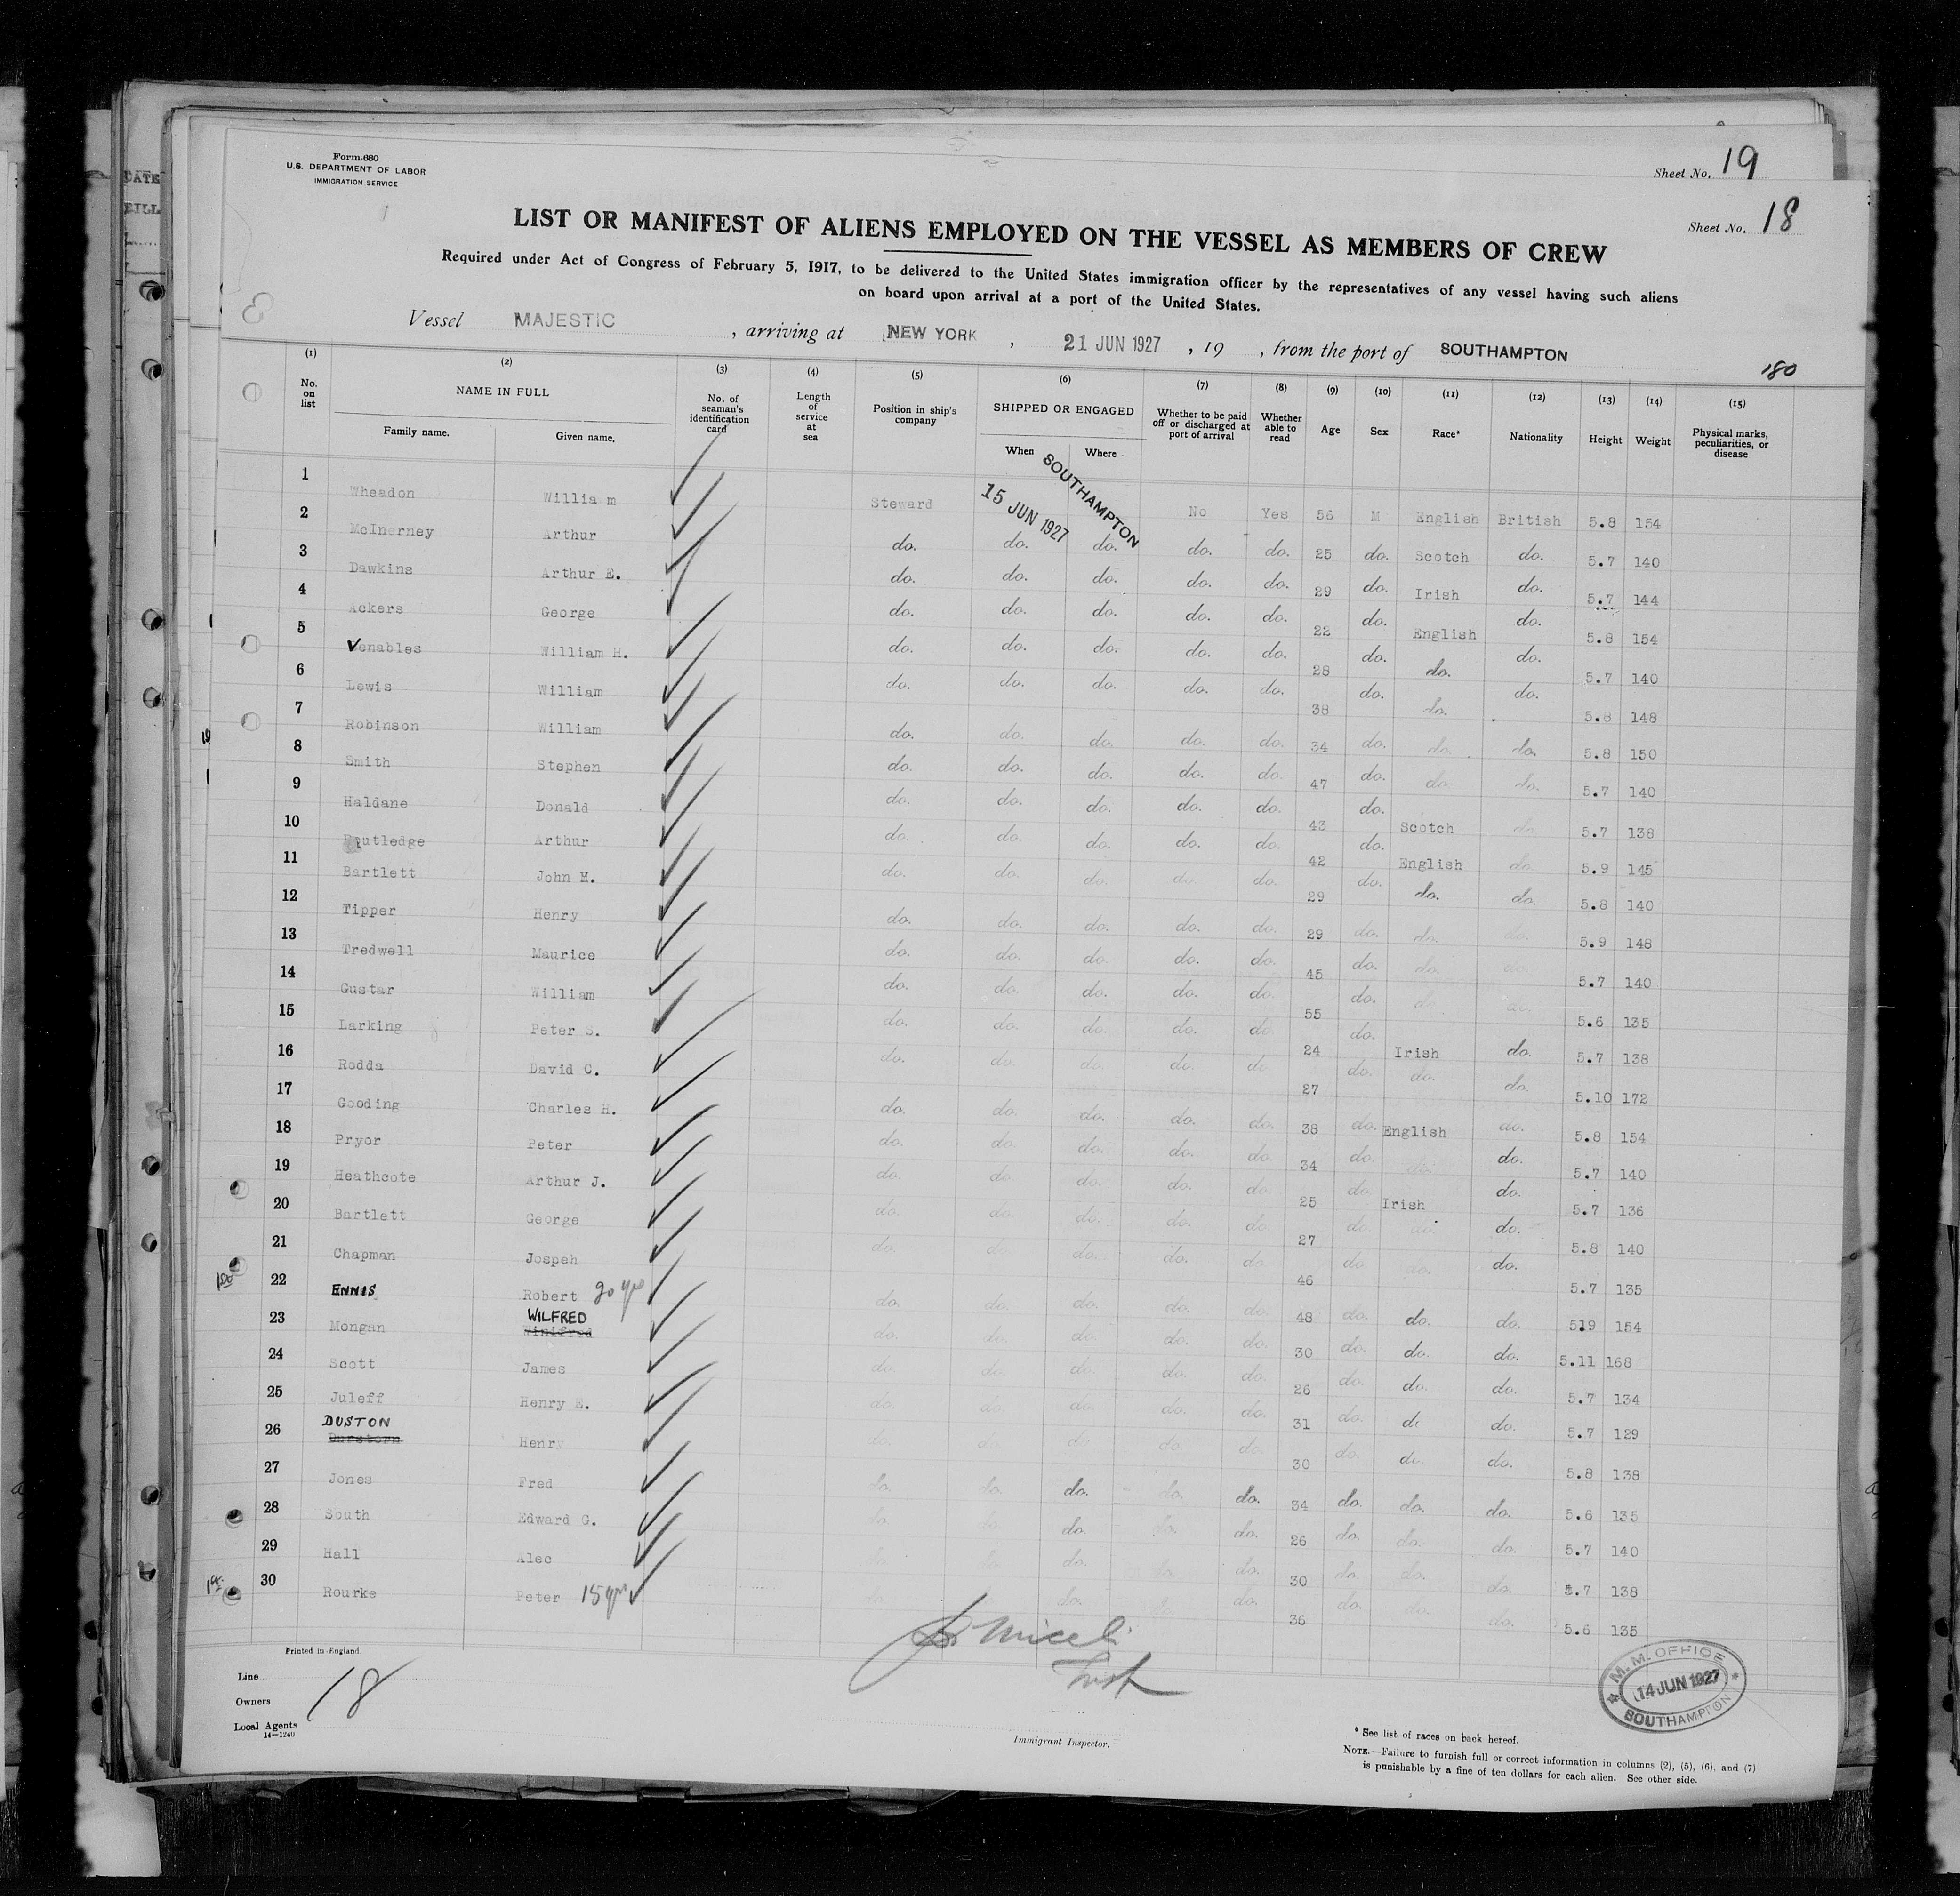 Form 680
U.S. DEPARTMENT OF LABOR
IMMIGRATION SERVICE
Sheet No. 19
Sheet No. 18
LIST OR MANIFEST OF ALIENS EMPLOYED ON THE VESSEL AS MEMBERS OF CREW
Required under Act of Congress of February 5, 1917, to be delivered to the United States immigration officer by the representatives of any vessel having such aliens
on board upon arrival at a port of the United States.
Vessel MAJESTIC , arriving at NEW YORK , 21 JUN 1927 , 19 , from the port of SOUTHAMPTON
180
(1) (2) (3) (4) (5) (6) (7) (8) (9) (10) (11) (12) (13) (14) (15)
No. on list NAME IN FULL Family name. Given name. No. of seaman's identification card Length of service at sea Position in ship's company SHIPPED OR ENGAGED When Where Whether to be paid off or discharged at port of arrival Whether able to read Age Sex Race* Nationality Height Weight Physical marks, peculiarities, or disease
1 Wheadon William Steward 15 JUN 1927 SOUTHAMPTON No Yes 56 M English British 5.8 154
2 McInerney Arthur do. do. do. do. do. 25 do. Scotch do. 5.7 140
3 Dawkins Arthur E. do. do. do. do. do. 29 do. Irish do. 5.7 144
4 Ackers George do. do. do. do. do. 22 do. English do. 5.8 154
5 Venables William H. do. do. do. do. do. 28 do. do. do. 5.7 140
6 Lewis William do. do. do. do. do. 38 do. do. do. 5.8 148
7 Robinson William do. do. do. do. do. 34 do. do. do. 5.8 150
8 Smith Stephen do. do. do. do. do. 47 do. do. do. 5.7 140
9 Haldane Donald do. do. do. do. do. 43 do. Scotch do. 5.7 138
10 Routledge Arthur do. do. do. do. do. 42 do. English do. 5.9 145
11 Bartlett John M. do. do. do. do. do. 29 do. do. do. 5.8 140
12 Tipper Henry do. do. do. do. do. 29 do. do. do. 5.9 148
13 Tredwell Maurice do. do. do. do. do. 45 do. do. do. 5.7 140
14 Gustar William do. do. do. do. do. 55 do. do. do. 5.6 135
15 Larking Peter S. do. do. do. do. do. 24 do. Irish do. 5.7 138
16 Rodda David C. do. do. do. do. do. 27 do. do. do. 5.10 172
17 Gooding Charles H. do. do. do. do. do. 38 do. English do. 5.8 154
18 Pryor Peter do. do. do. do. do. 34 do. do. do. 5.7 140
19 Heathcote Arthur J. do. do. do. do. do. 25 do. Irish do. 5.7 136
20 Bartlett George do. do. do. do. do. 27 do. do. do. 5.8 140
21 Chapman Jospeh do. do. do. do. do. 46 do. do. do. 5.7 135
22 ENNIS Robert 20 yrs do. do. do. do. do. 48 do. do. do. 5.9 154
23 Mongan WILFRED Winifred do. do. do. do. do. 30 do. do. do. 5.11 168
24 Scott James do. do. do. do. do. 26 do. do. do. 5.7 134
25 Juleff Henry E. do. do. do. do. do. 31 do. do. do. 5.7 129
26 DUSTON Henry do. do. do. do. do. 30 do. do. do. 5.8 138
27 Jones Fred do. do. do. do. do. 34 do. do. do. 5.6 135
28 South Edward G. do. do. do. do. do. 26 do. do. do. 5.7 140
29 Hall Alec do. do. do. do. 30 do. do. do. 5.7 138
30 Rourke Peter 15 yrs do. do. do. do. 36 do. do. do. 5.6 135
Printed in England.
Line
Owners
Local Agents
14—1240
18
Immigrant Inspector.
M. M. OFFICE
14 JUN 1927
SOUTHAMPTON
* See list of races on back hereof.
NOTE.—Failure to furnish full or correct information in columns (2), (5), (6), and (7)
is punishable by a fine of ten dollars for each alien. See other side.